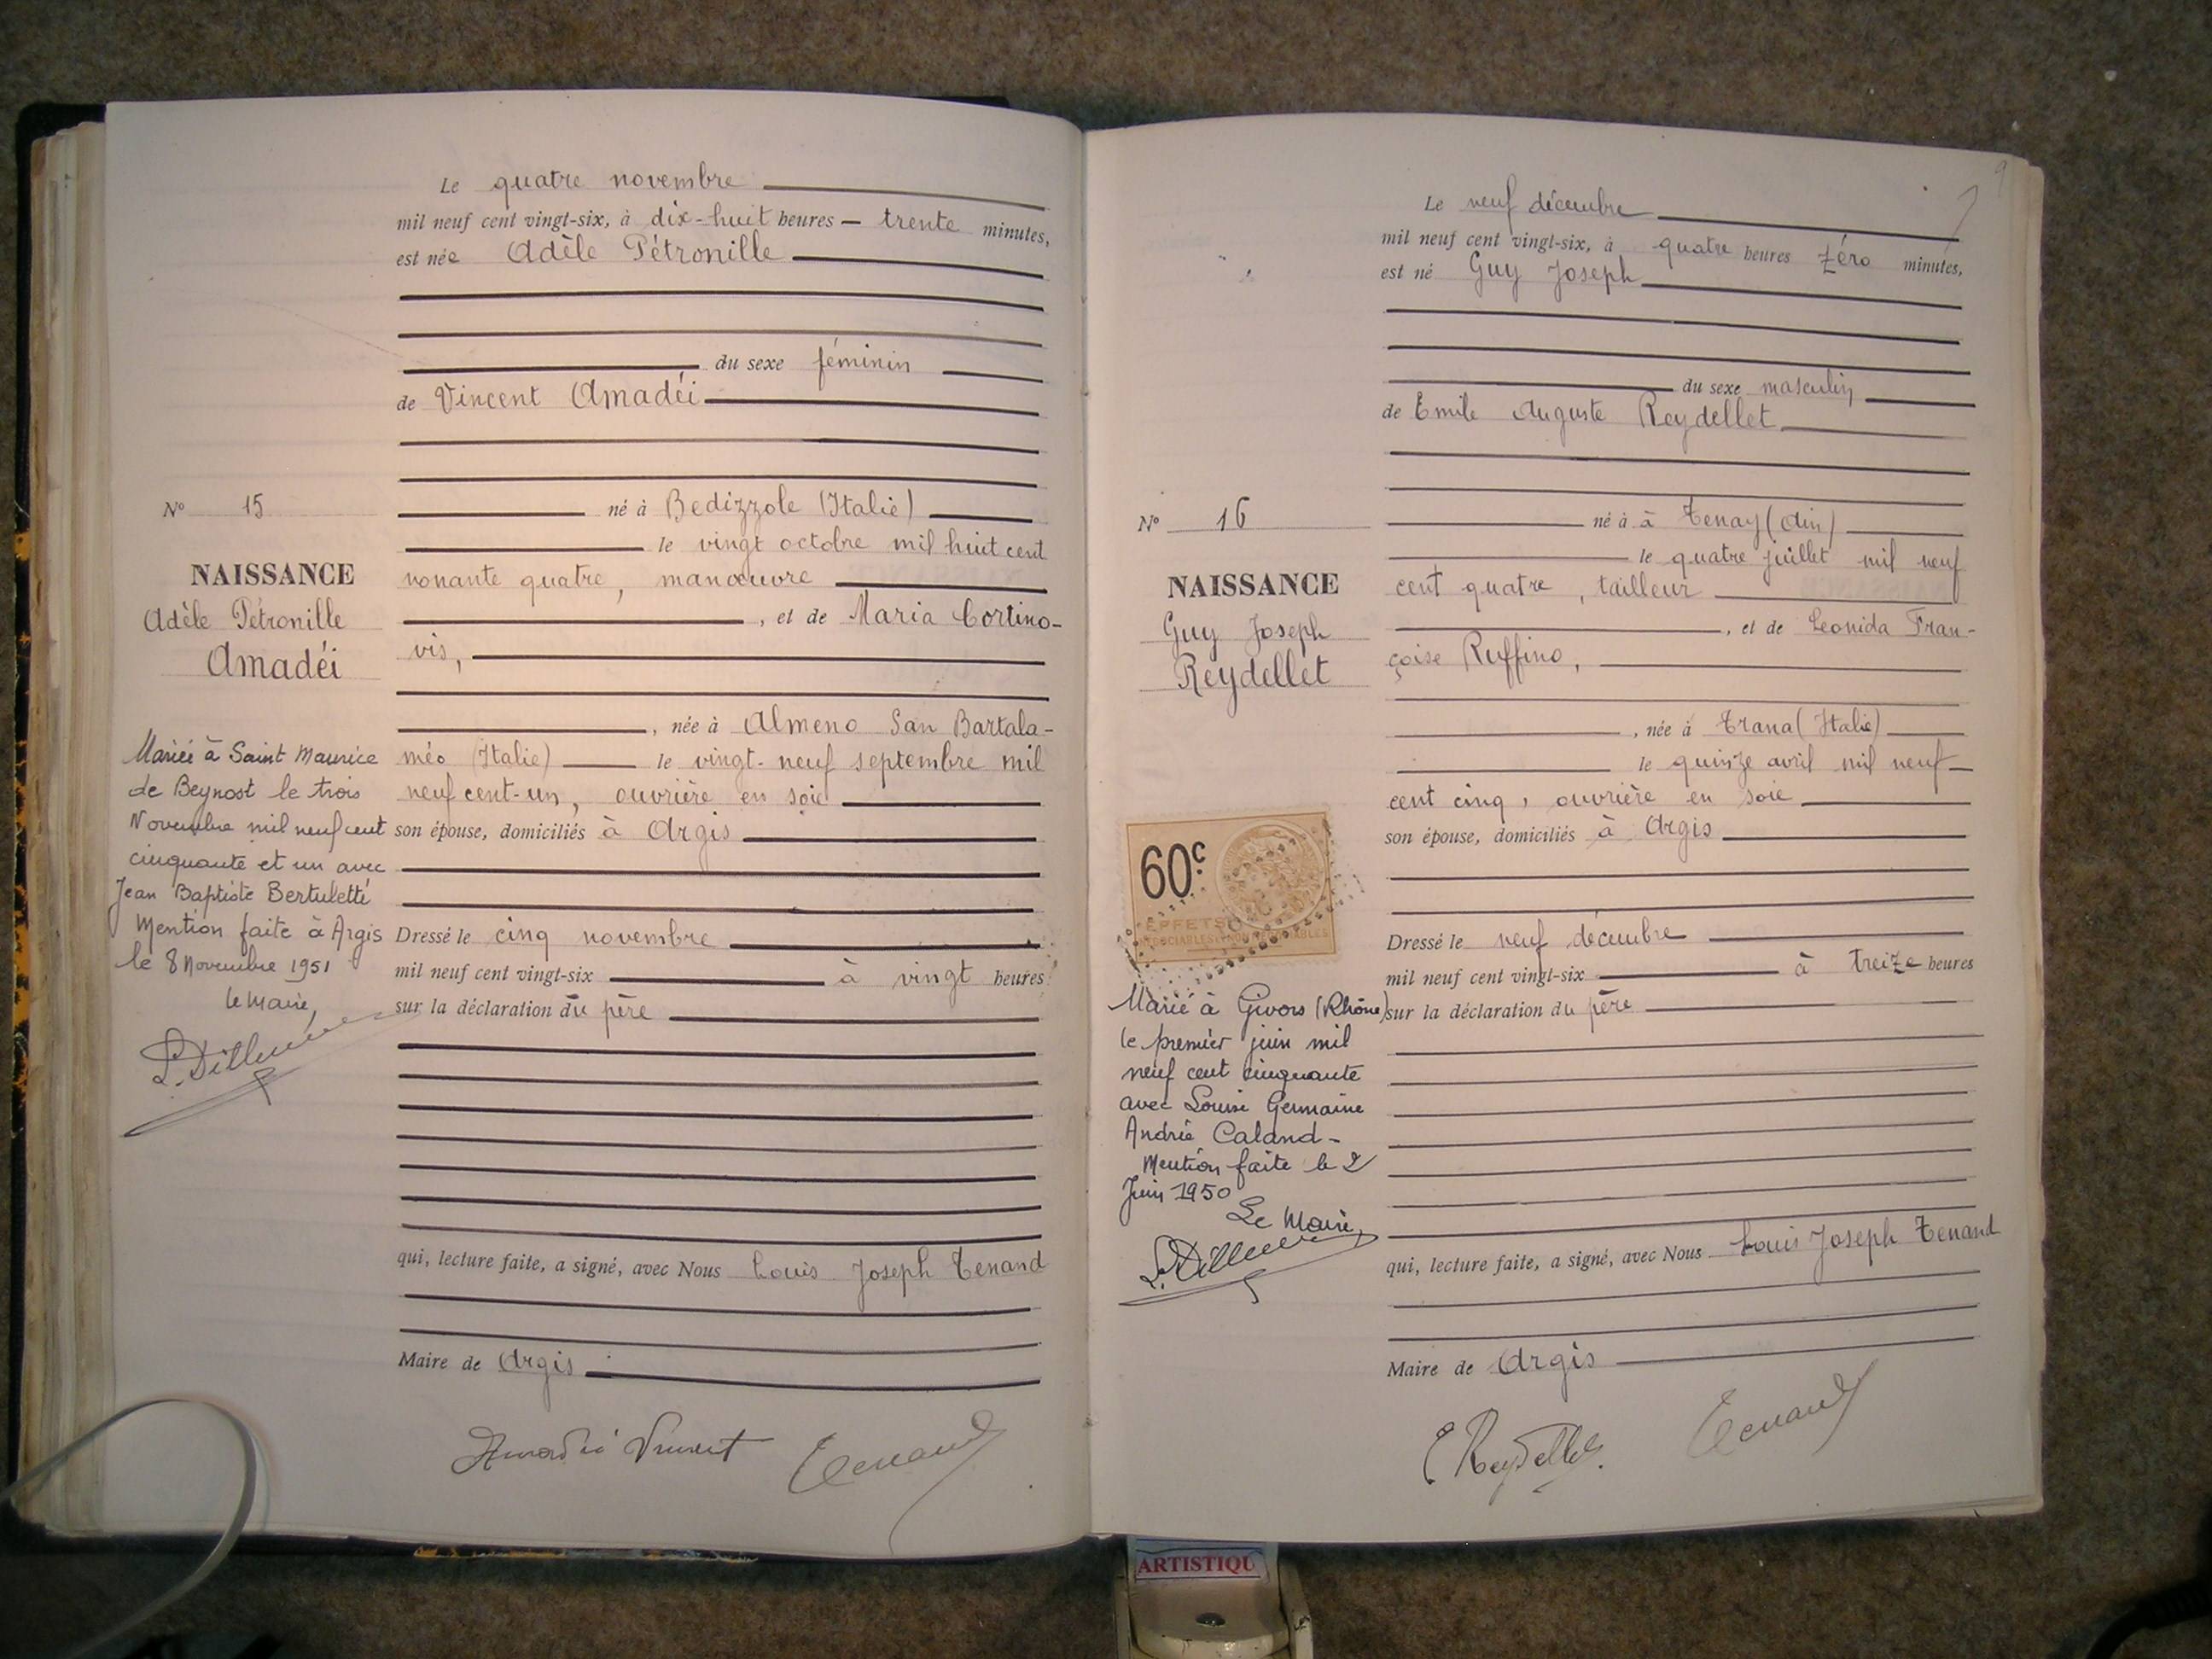 Le quatre novembre
mil neuf cent vingt-six, à dix-huit heures — trente minutes,
est née Adèle Pétronille
du sexe féminin
de Vincent Amadéi
né à Bedizzole (Italie)
le vingt octobre mil huit cent
nonante quatre, manœuvre
, et de Maria Cortino-
vis,
, née à Almeno San Bartala-
méo (Italie) le vingt-neuf septembre mil
neuf cent-un, ouvrière en soie
son épouse, domiciliés à Argis
Dressé le cinq novembre
mil neuf cent vingt-six à vingt heures
sur la déclaration du père
qui, lecture faite, a signé, avec Nous Louis Joseph Tenand
Maire de Argis
Amadéi Vincent Tenand
No 15
NAISSANCE
Adèle Pétronille
Amadéi
Mariée à Saint Maurice
de Beynost le trois
Novembre mil neuf cent
cinquante et un avec
Jean Baptiste Bertuletti
Mention faite à Argis
le 8 Novembre 1951
le Maire,
9
Le neuf décembre
mil neuf cent vingt-six, à quatre heures zéro minutes,
est né Guy Joseph
du sexe masculin
de Emile Auguste Reydellet
né à à Tenay (Ain)
le quatre juillet mil neuf
cent quatre, tailleur
, et de Leonida Fran-
çoise Ruffino,
, née à Trana (Italie)
le quinze avril mil neuf
cent cinq, ouvrière en soie
son épouse, domiciliés à Argis
Dressé le neuf décembre
mil neuf cent vingt-six à treize heures
sur la déclaration du père
qui, lecture faite, a signé, avec Nous Louis Joseph Tenand
Maire de Argis
E Reydellet Tenand
No 16
NAISSANCE
Guy Joseph
Reydellet
60c
EFFETS
Marié à Givors (Rhône)
le premier juin mil
neuf cent cinquante
avec Louise Germaine
Andrée Caland -
Mention faite le 2
Juin 1950
Le Maire,
ARTISTIQU